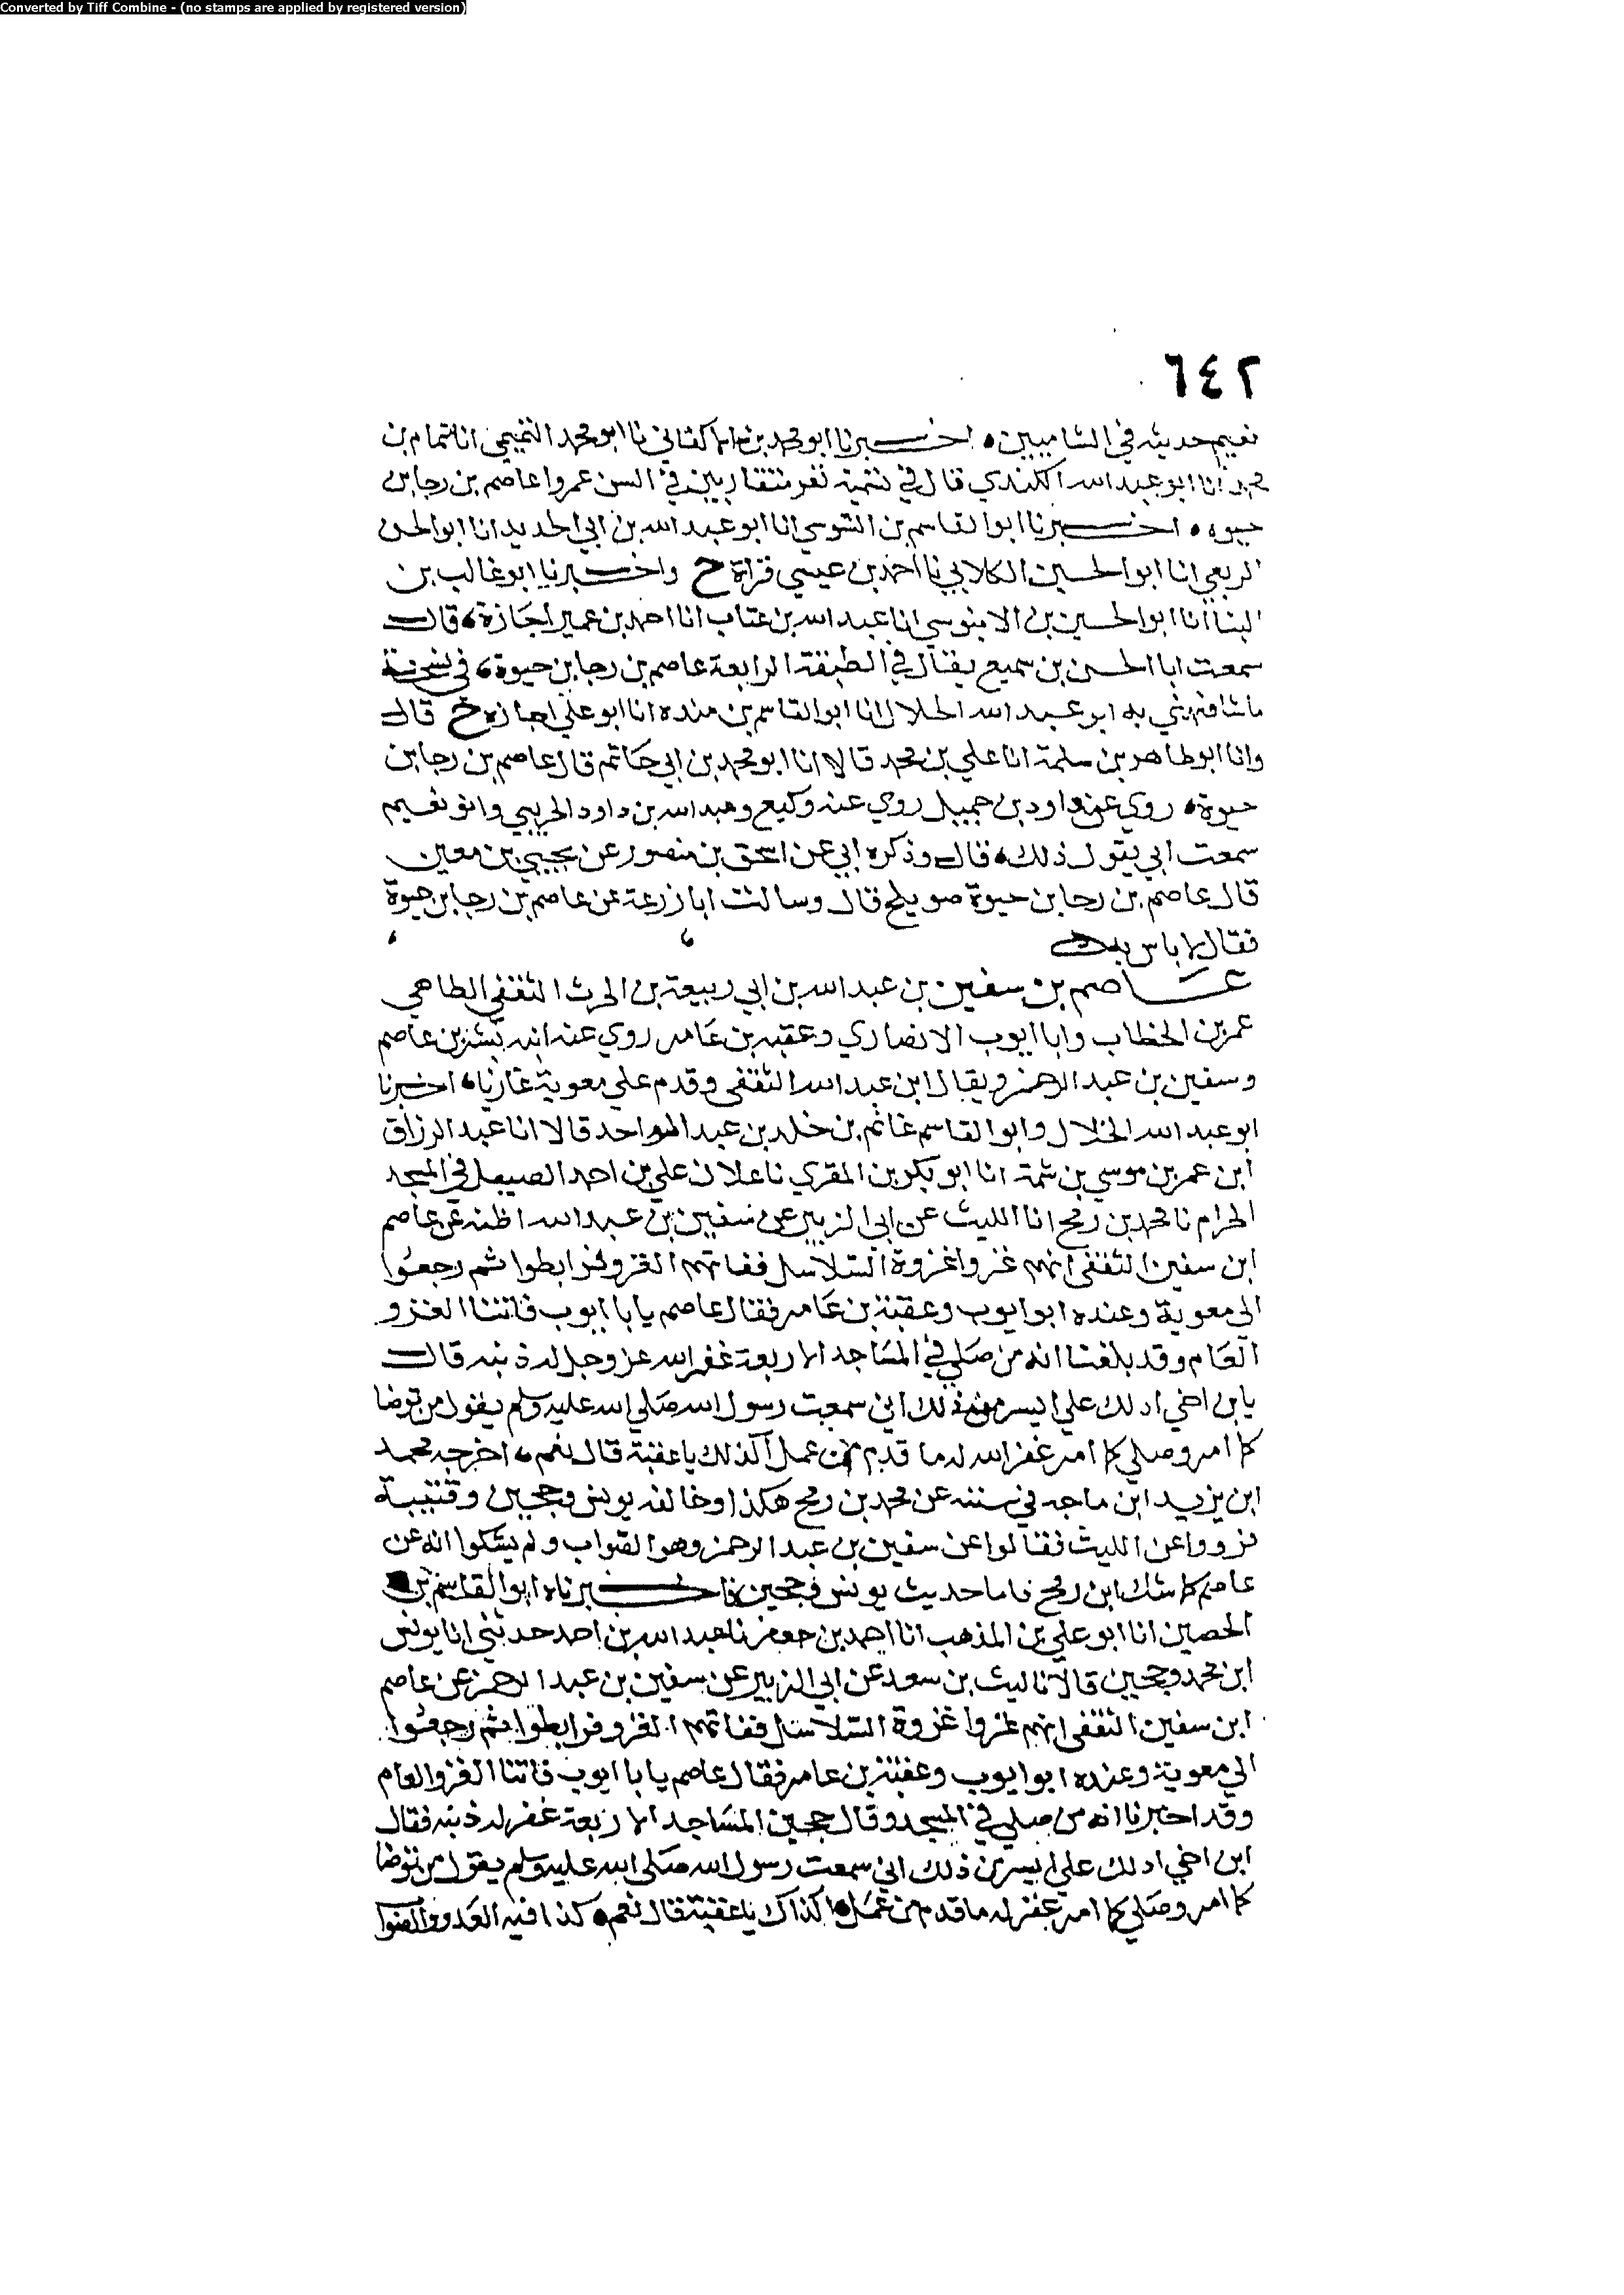 Converted by Tiff Combine - (no stamps are applied by registered version)
٦٤٢
نعيم حديثه في الشاميين، اخبرنا ابو محمد بن الاكفاني نا ابو محمد التميمي انا تمام بن
محمد انا ابو عبد الله الكندي قال في تتمية نفر متقاربين في السن عمروا عاصم بن رجا بن
حيوه، اخبرنا ابو القاسم بن السوسي انا ابو عبد الله بن ابي الحديد انا ابو الحسن
الربعي انا ابو الحسين الكلابي نا احمد بن عيسي قراة ح واخبرنا ابو غالب بن
البنا انا ابو الحسين بن الابنوسي انا عبد الله بن عتاب انا احمد بن عمير اجازة، قال
سمعت ابا الحسن بن سميع يقال في الطبقة الرابعة عاصم بن رجا بن حيوة، في نسخة
ما شافهني به ابو عبد الله الخلال انا ابو القاسم بن منده انا ابو علي اجازه ح قال
وانا ابو طاهر بن سلمة انا علي بن محمد قالا انا ابو محمد بن ابي حاتم قال عاصم بن رجا بن
حيوة، روي عن داود بن جميل روي عنه وكيع وعبد الله بن داود الخريبي وابو نعيم
سمعت ابي يقول ذلك، قال وذكره ابي عن اسحق بن منصور عن يحيي بن معين
قال عاصم بن رجا بن حيوة صويلح قال وسالت ابا زرعة عن عاصم بن رجا بن حيوة
فقال لا باس به
عاصم بن سفين بن عبد الله بن ابي ربيعة بن الحرث الثقفي الطاهي
عمر بن الخطاب وابا ايوب الانصاري وعقبه بن عامر روي عنه ابنه بشر بن عاصم
وسفين بن عبد الرحمن ويقال ابن عبد الله الثقفي وقدم علي معوية غازيا، اخبرنا
ابو عبد الله الخلال وابو القاسم غانم بن خلد بن عبد الواحد قالا انا عبد الرزاق
ابن عمر بن موسي بن شمة انا ابو بكر بن المقري نا علان علي بن احمد الصيقل في المسجد
الحرام نا محمد بن رمح انا الليث عن ابي الزبير عن سفين بن عبد الله اظنه عن عاصم
ابن سفين الثقفي انهم غزوا غزوة السلاسل ففاتهم الغزو فرابطوا ثم رجعوا
الي معوية وعنده ابو ايوب وعقبة بن عامر فقال عاصم يا با ايوب فاتنا الغزو
العام وقد بلغنا انه من صلي في المساجد الاربعة غفر الله عز وجل له ذنبه قال
يا بن اخي ادلك علي ايسر من ذلك اني سمعت رسول الله صلي الله عليه وسلم يقول من توضا
كما امر وصلي كما امر غفر الله له ما قدم من عمل اكذلك يا عقبة قال نعم، اخرجه محمد
ابن يزيد ابن ماجه في سننه عن محمد بن رمح هكذا وخالفه يونس وحجين وقتيبة
فرووا عن الليث فقالوا عن سفين بن عبد الرحمن وهو الصواب ولم يشكوا انه عن
عاصم كما شك ابن رمح فاما حديث يونس وحجين فاخبرناه ابو القاسم بن
الحصين انا ابو علي بن المذهب انا احمد بن جعفر نا عبد الله بن احمد حدثني انا يونس
ابن محمد وحجين قالا نا ليث بن سعد عن ابي الزبير عن سفين بن عبد الرحمن عن عاصم
ابن سفين الثقفي انهم غزوا غزوة السلاسل ففاتهم الغزو فرابطوا ثم رجعوا
الي معوية وعنده ابو ايوب وعقبة بن عامر فقال عاصم يا با ايوب فاتنا الغزو العام
وقد اخبرنا انه من صلي في المسجد وقال حجين المساجد الاربعة غفر له ذنبه فقال
ابن اخي ادلك علي ايسر من ذلك اني سمعت رسول الله صلي الله عليه وسلم يقول من توضا
كما امر وصلي كما امر غفر له ما قدم من عمل اكذاك يا عقبة قال نعم، كذا فيه العدو والصوا